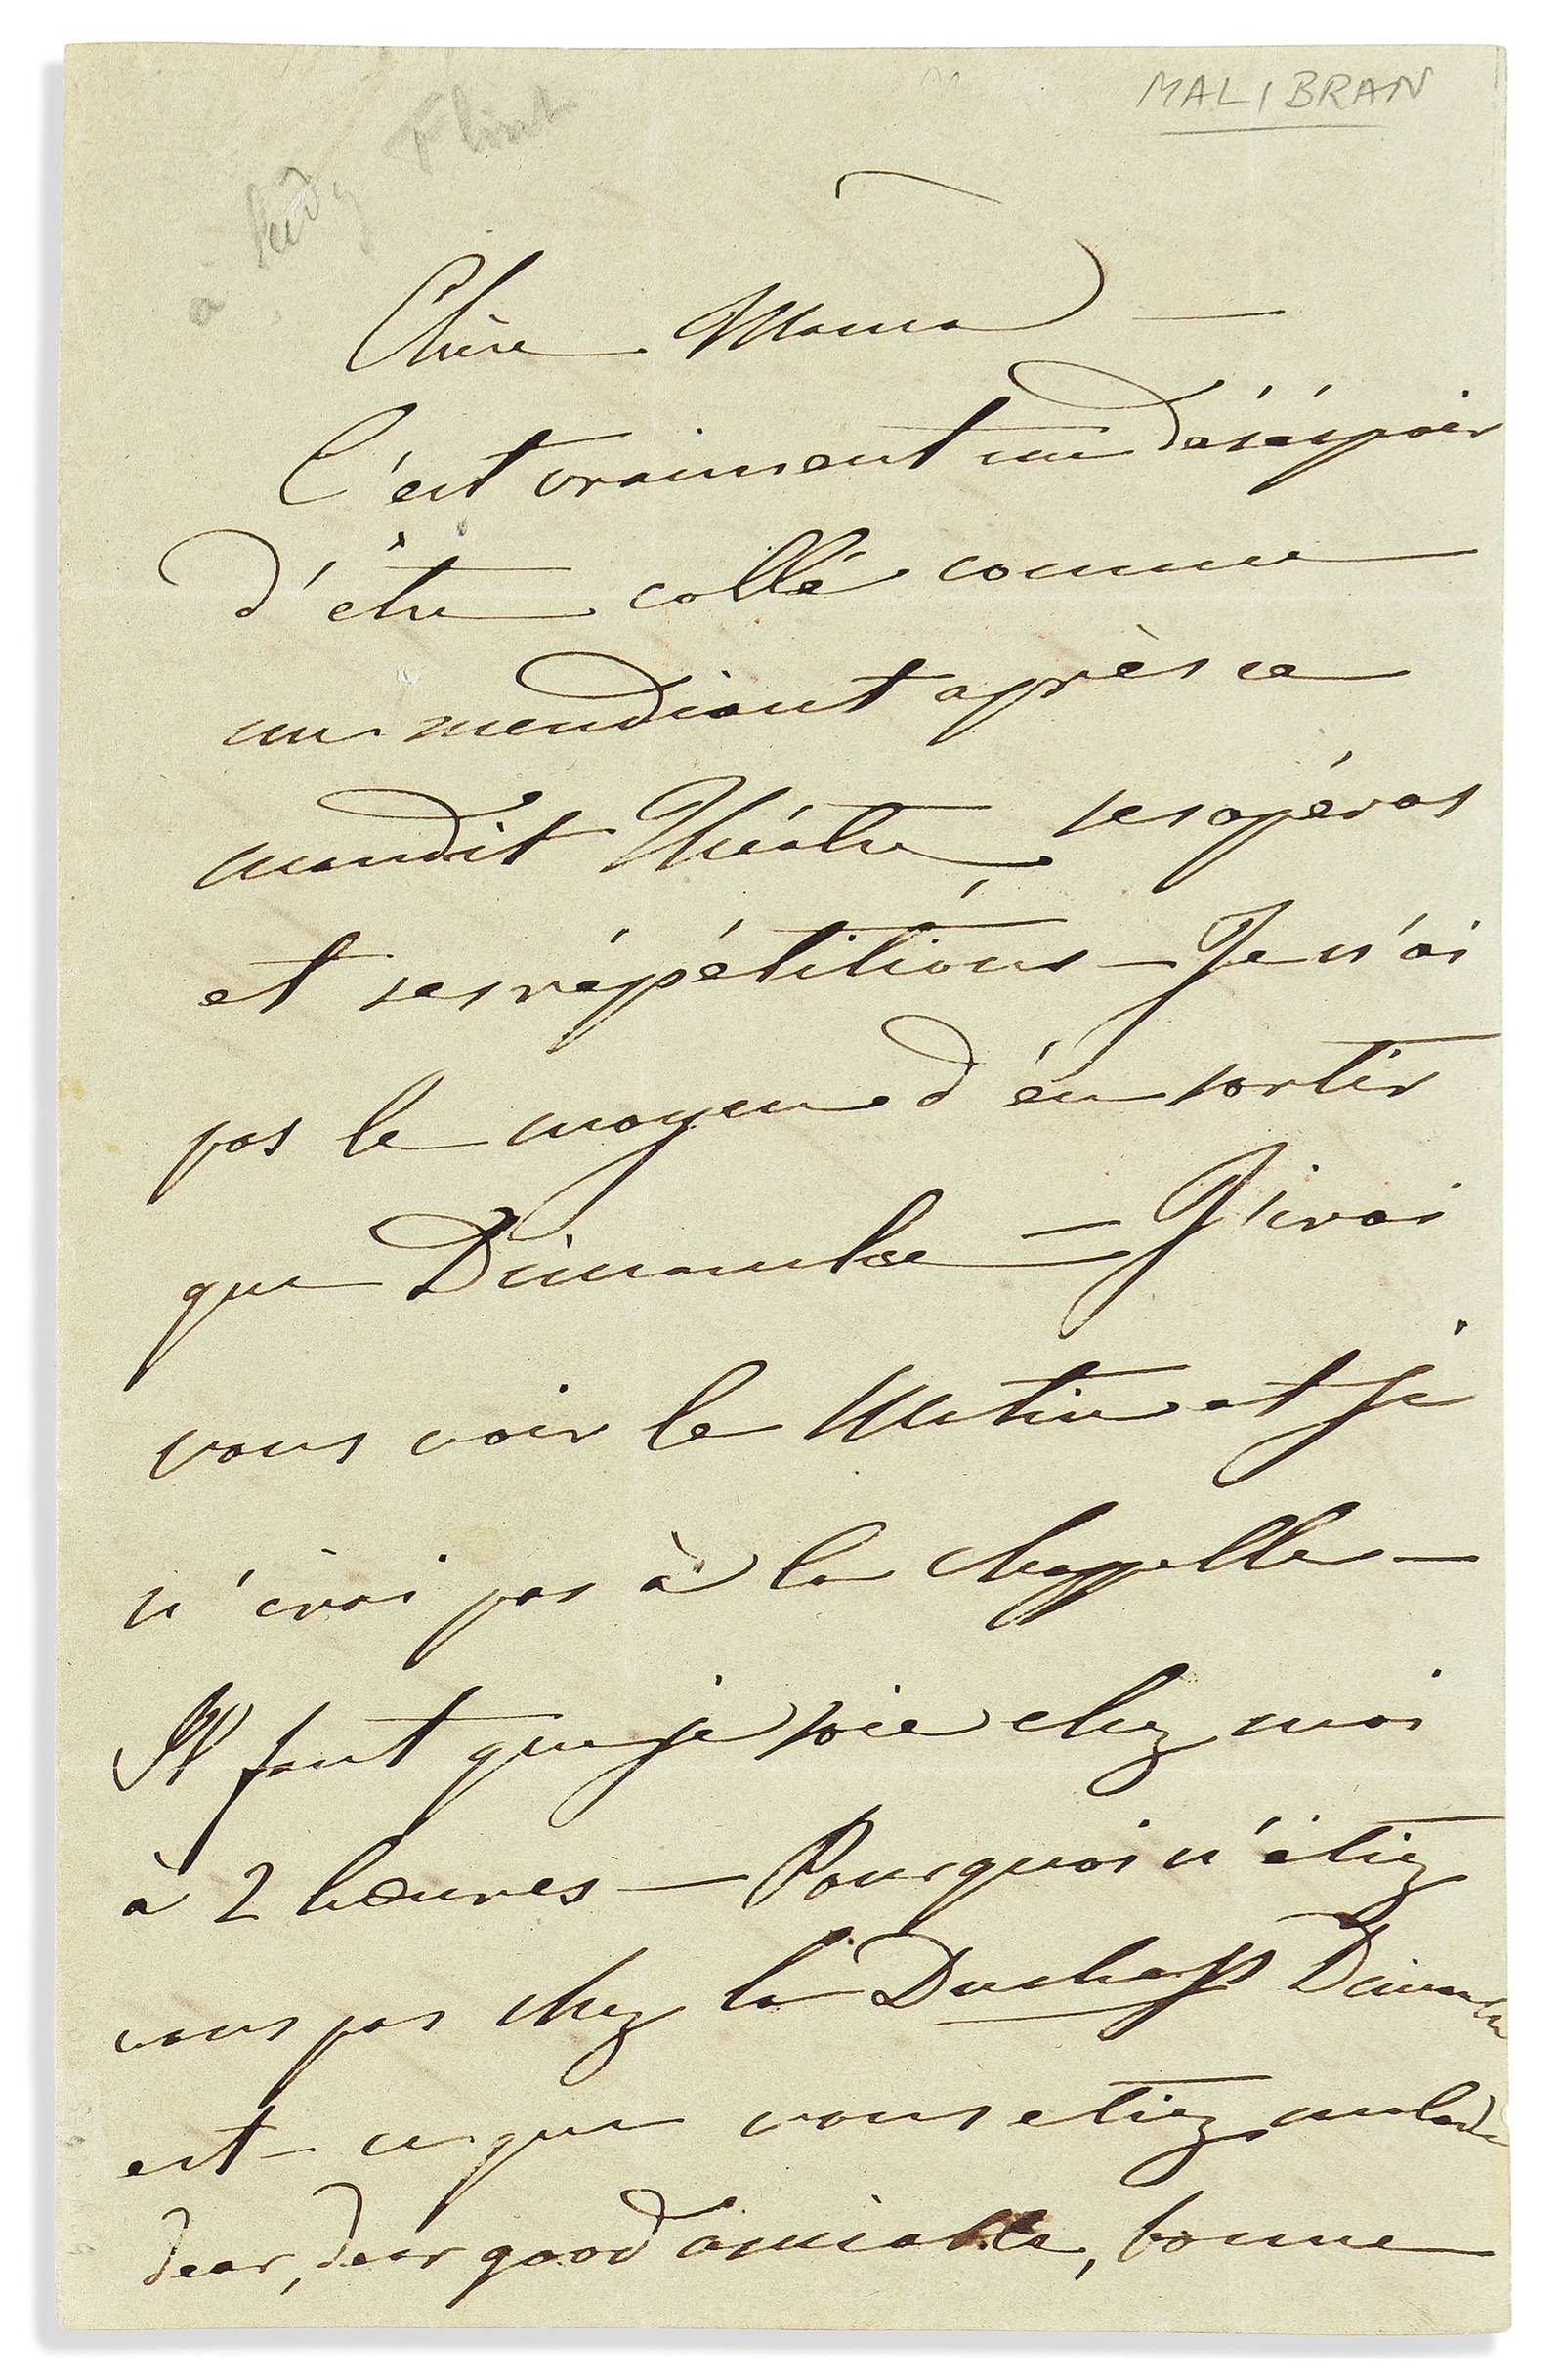 MALIBRAN
à Lady Flint
Chère Mama —
C'est vraiment un déséspoir
d'être collé comme
un mendiant après ce
maudit Théâtre, ses opéras
et ses répétitions — Je n'ai
pas le moyen d'en sortir
que Dimanche = J'irai
vous voir le Matin et je
n'irai pas à la chappelle —
Il faut que je soie chez moi
à 2 heures — Pourquoi n'étiez
vous pas chez la Duchess Dimanche
est-ce que vous etiez malade
dear, dear good amiable, bonne